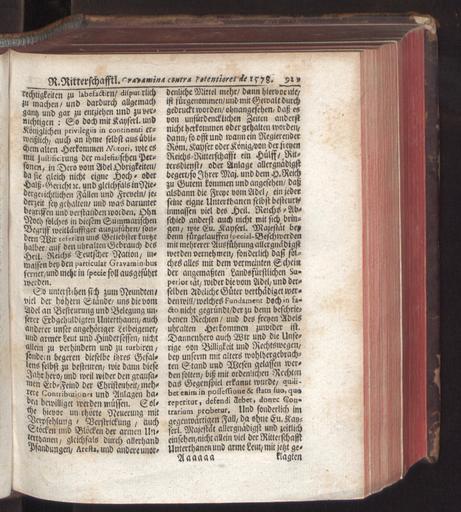 R. Ritterschafftl. Gravamina contra Potentiores de 1578. 921
rechtigkeiten zu labefactirn/ disputirlich
zu machen/ und dardurch allgemach
gantz und gar zu entziehen und zu ver-
nichtigen: So doch mit Kayserl. und
Königlichen privilegiis in continenti er-
weißlich/ auch an ihme selbst aus übli-
chem alten Herkommen Notori, wie es
mit Justificirung der malefitischen Per-
sonen, in Dero vom Adel Obrigkeiten/
da sie gleich nicht eigne Hoch- oder
Halß-Gericht &c. und gleichfals in Ni-
dergerichtlichen Fällen und Freveln/ je-
derzeit seye gehalten/ und was darunter
begriffen und verstanden worden, Ohn
Noth solches in diesem Summarischen
Begriff weitläuffiger auszuführen/ son-
dern Wir referirn uns Geliebter kurtze
halber auf den uhralten Gebrauch des
Heil. Reichs Teutscher Nation, in-
massen bey den particular Gravaminibus
ferner/ und mehr in specie soll ausgeführt
werden.
So unterstehen sich zum Neundten/
viel der höhern Stände/ uns die vom
Adel an Besteurung und Belegung un-
serer Erbgehuldigten Unterthanen/ auch
anderer unser angehöriger Leibeigener/
und armer Leut und Hindersessen/ nicht
allein zu verhindern und zu turbiren/
sondern begeren dieselbe ihres Gefal-
lens selbst zu besteuren/ wie dann diese
Jahr hero/ und weil wider den grausa-
men Erb-Feind der Christenheit/ meh-
rere Contributiones und Anlagen ha-
ben bewilliget werden müssen. Sol-
che hievor unerhörte Neuerung mit
Verpfehlung/ Verstrickung/ auch
Stöcken und Blöcken der armen Un-
terthanen/ gleichfals durch allerhand
Pfandungen/ Aresta, und andere unor-
denliche Mittel mehr/ dann hievor nie/
ist fürgenommen/ und mit Gewalt durch
gedruckt worden/ ohnangesehen/ daß es
von unfürdencklichen Zeiten anderst
nicht herkommen oder gehalten worden/
dann/ so oft und wann ein Regierender
Röm. Kayser oder König/ von der freyen
Reichs-Ritterschafft ein Hülff/ Rit-
tersdienst/ oder Anlage allergnädigst
begert/ so Ihrer Maj. und dem H. Reich
zu Gutem kommen und angesehen/ daß
alsdann die Freye vom Adel/ ein jeder
seine eigne Unterthanen selbst besteurt/
inmassen viel des Heil. Reichs-Ab-
schied anderst auch nicht mit sich brin-
gen/ wie Eu. Kayserl. Majestät bey
dem fürgelauffen special-Beschwerden
mit mehrerer Ausführung allergnädigst
werden vernehmen, sonderlich daß sol-
ches alles mit dem vermeinten Schein
der angemaßten Landsfürstlichen Su-
periorität/ wider die vom Adel, und der-
selben Adeliche Güter verthädiget wer-
den will/ welches Fundament doch in fa-
cto nicht gegründ/ der zu denn beschrie-
benen Rechten/ und des freyen Adels
uhralten Herkommen zuwider ist.
Dannenhero auch Wir und die Unse-
rige von Billigkeit und Rechtswegen/
bey unserm mit alters wohlhergebrach-
ten Stand und Wesen gelassen wer-
den solten/ biß mit ordenlichen Rechten
das Gegenspiel erkannt wurde/ quili-
bet enim in possessione & statu suo, quo
reperitur, defendi debet, donec Con-
trarium probetur. Und sonderlich im
gegenwärtigen Fall, da ohne Eu. Kay-
serl. Majestät allergnädigst und zeitlich
einsehen/ nicht allein viel der Ritterschafft
Unterthanen und arme Leut/ mit jetzt ge-
Aaaaaa klagten